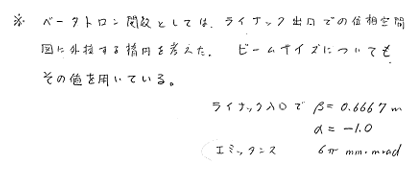 ※ ベータトロン関数としては、ライナック出口での位相空間
図に外接する楕円を考えた。 ビームサイズについても
その値を用いている。
ライナック入口で β = 0.6667 m
α = -1.0
エミッタンス 6π mm・mrad